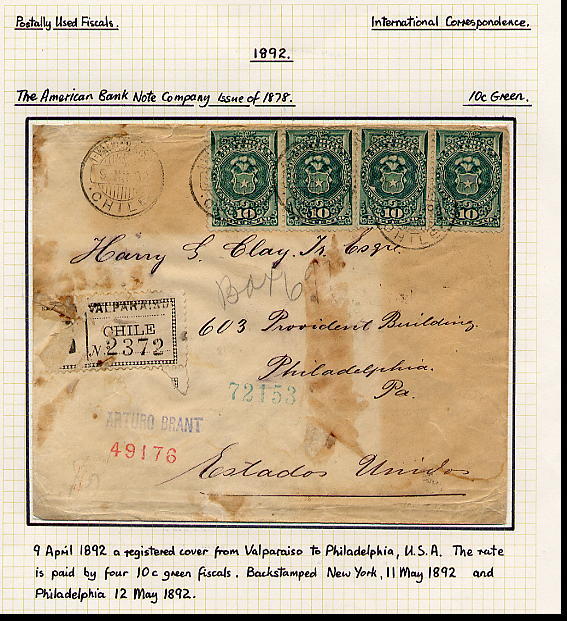 Postally Used Fiscals.
International Correspondence.
1892.
The American Bank Note Company Issue of 1878.
10c Green.
CHILE
10 10 10 10
CHILE
Harry G. Clay Jr. Esqre
Box 6
VALPARAISO
CHILE
No 2372
603 Provident Building.
Philadelphia.
Pa.
72153
ARTURO BRANT
49176
Estados Unidos
9 April 1892 a registered cover from Valparaiso to Philadelphia, U.S.A. The rate
is paid by four 10c green fiscals. Backstamped New York, 11 May 1892 and
Philadelphia 12 May 1892.